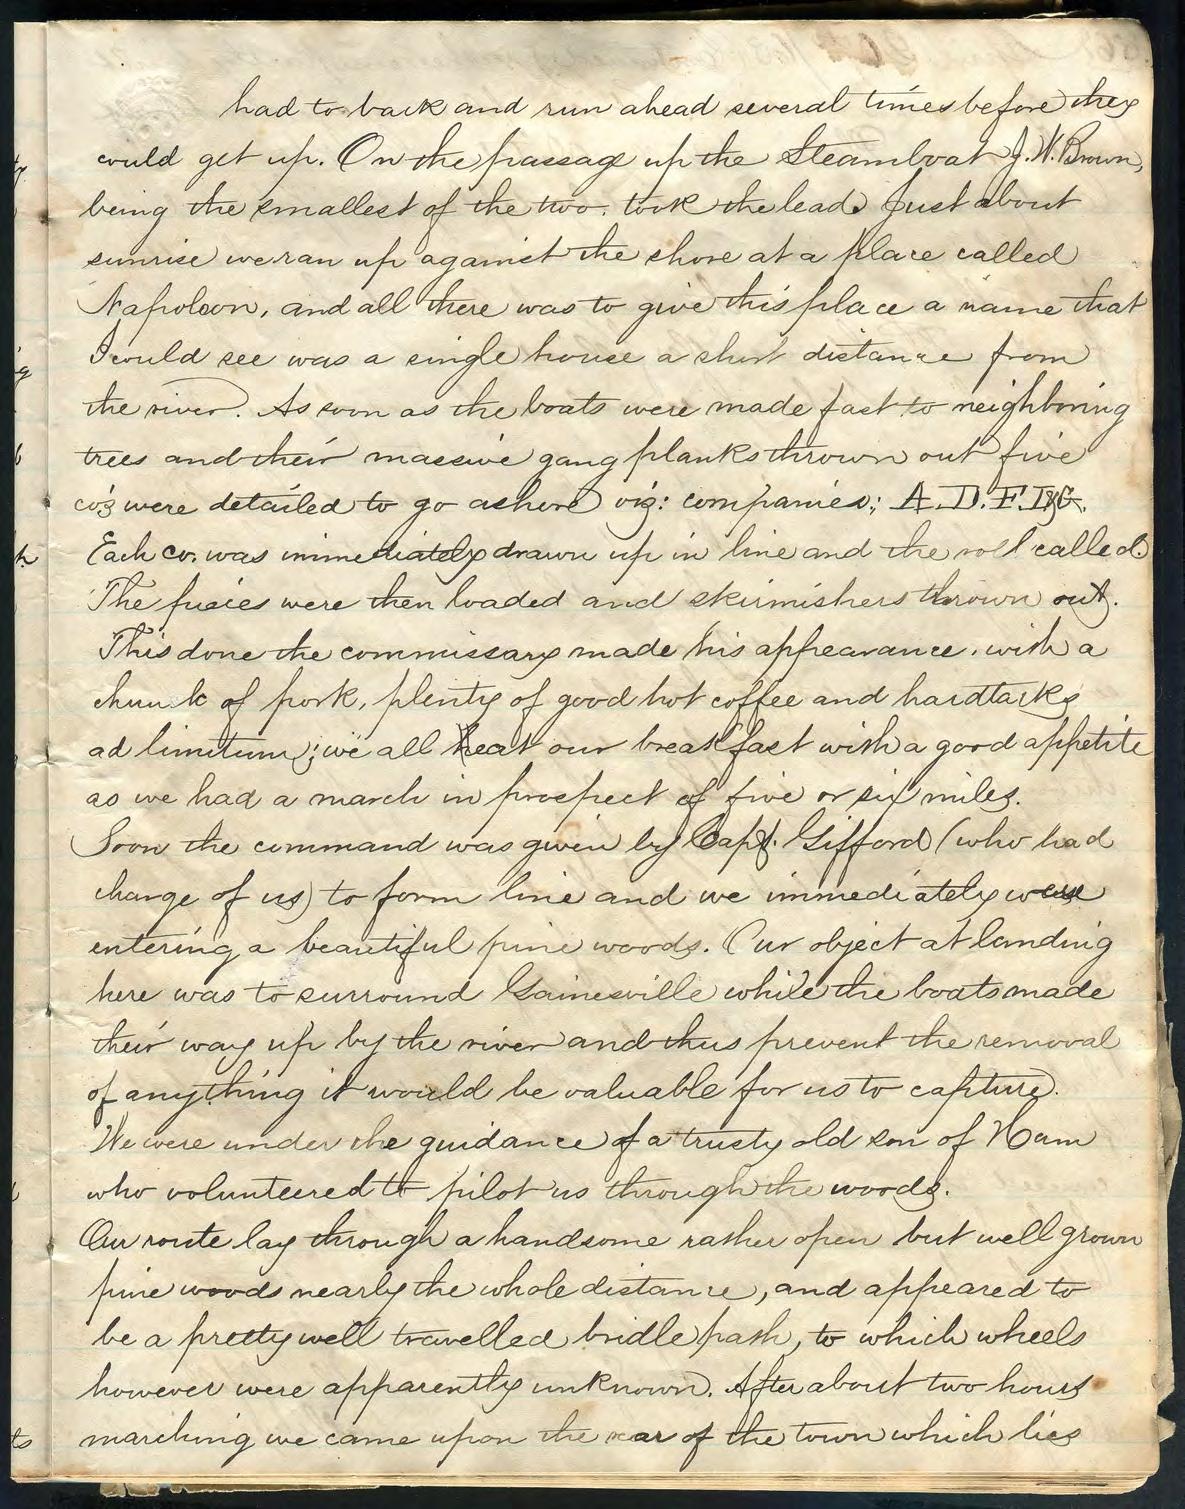 had to back and run ahead several times before they
could get up. On the passage up the Steamboat J. W. Brown,
being the smallest of the two. took the lead. Just about
sunrise we ran up against the shore at a place called
Napoleon, and all there was to give this place a name that
I could see was a single house a short distance from
the river. As soon as the boats were made fast to neighboring
trees and their massive gang planks thrown out five
co's were detailed to go ashore viz: companies; A. D. F. I & G.
Each co. was immediately drawn up in line and the roll called.
The fusies were then loaded and skirmishers thrown out.
This done the commissary made his appearance. with a
chunk of pork, plenty of good hot coffee and hardtacks
ad limitum; we all eat our breakfast with a good appetite
as we had a march in prospect of five or six miles.
Soon the command was given by Capt. Gifford (who had
charge of us) to form line and we immediately were
entering a beautiful pine woods. Our object at landing
here was to surround Gainesville while the boats made
their way up by the river and thus prevent the removal
of anything it would be valuable for us to capture.
We were under the guidance of a trusty old son of Ham
who volunteered to pilot us through the woods.
Our route lay through a handsome rather open but well grown
pine woods nearly the whole distance, and appeared to
be a pretty well travelled bridle path, to which wheels
however were apparently unknown. After about two hours
marching we came upon the rear of the town which lies